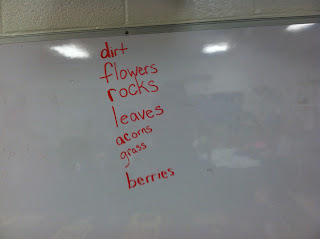 dirt
flowers
rocks
leaves
acorns
grass
berries